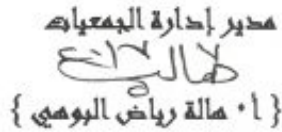 مدير إدارة الجمعيات
{ أ . هالة رياض البوهي }